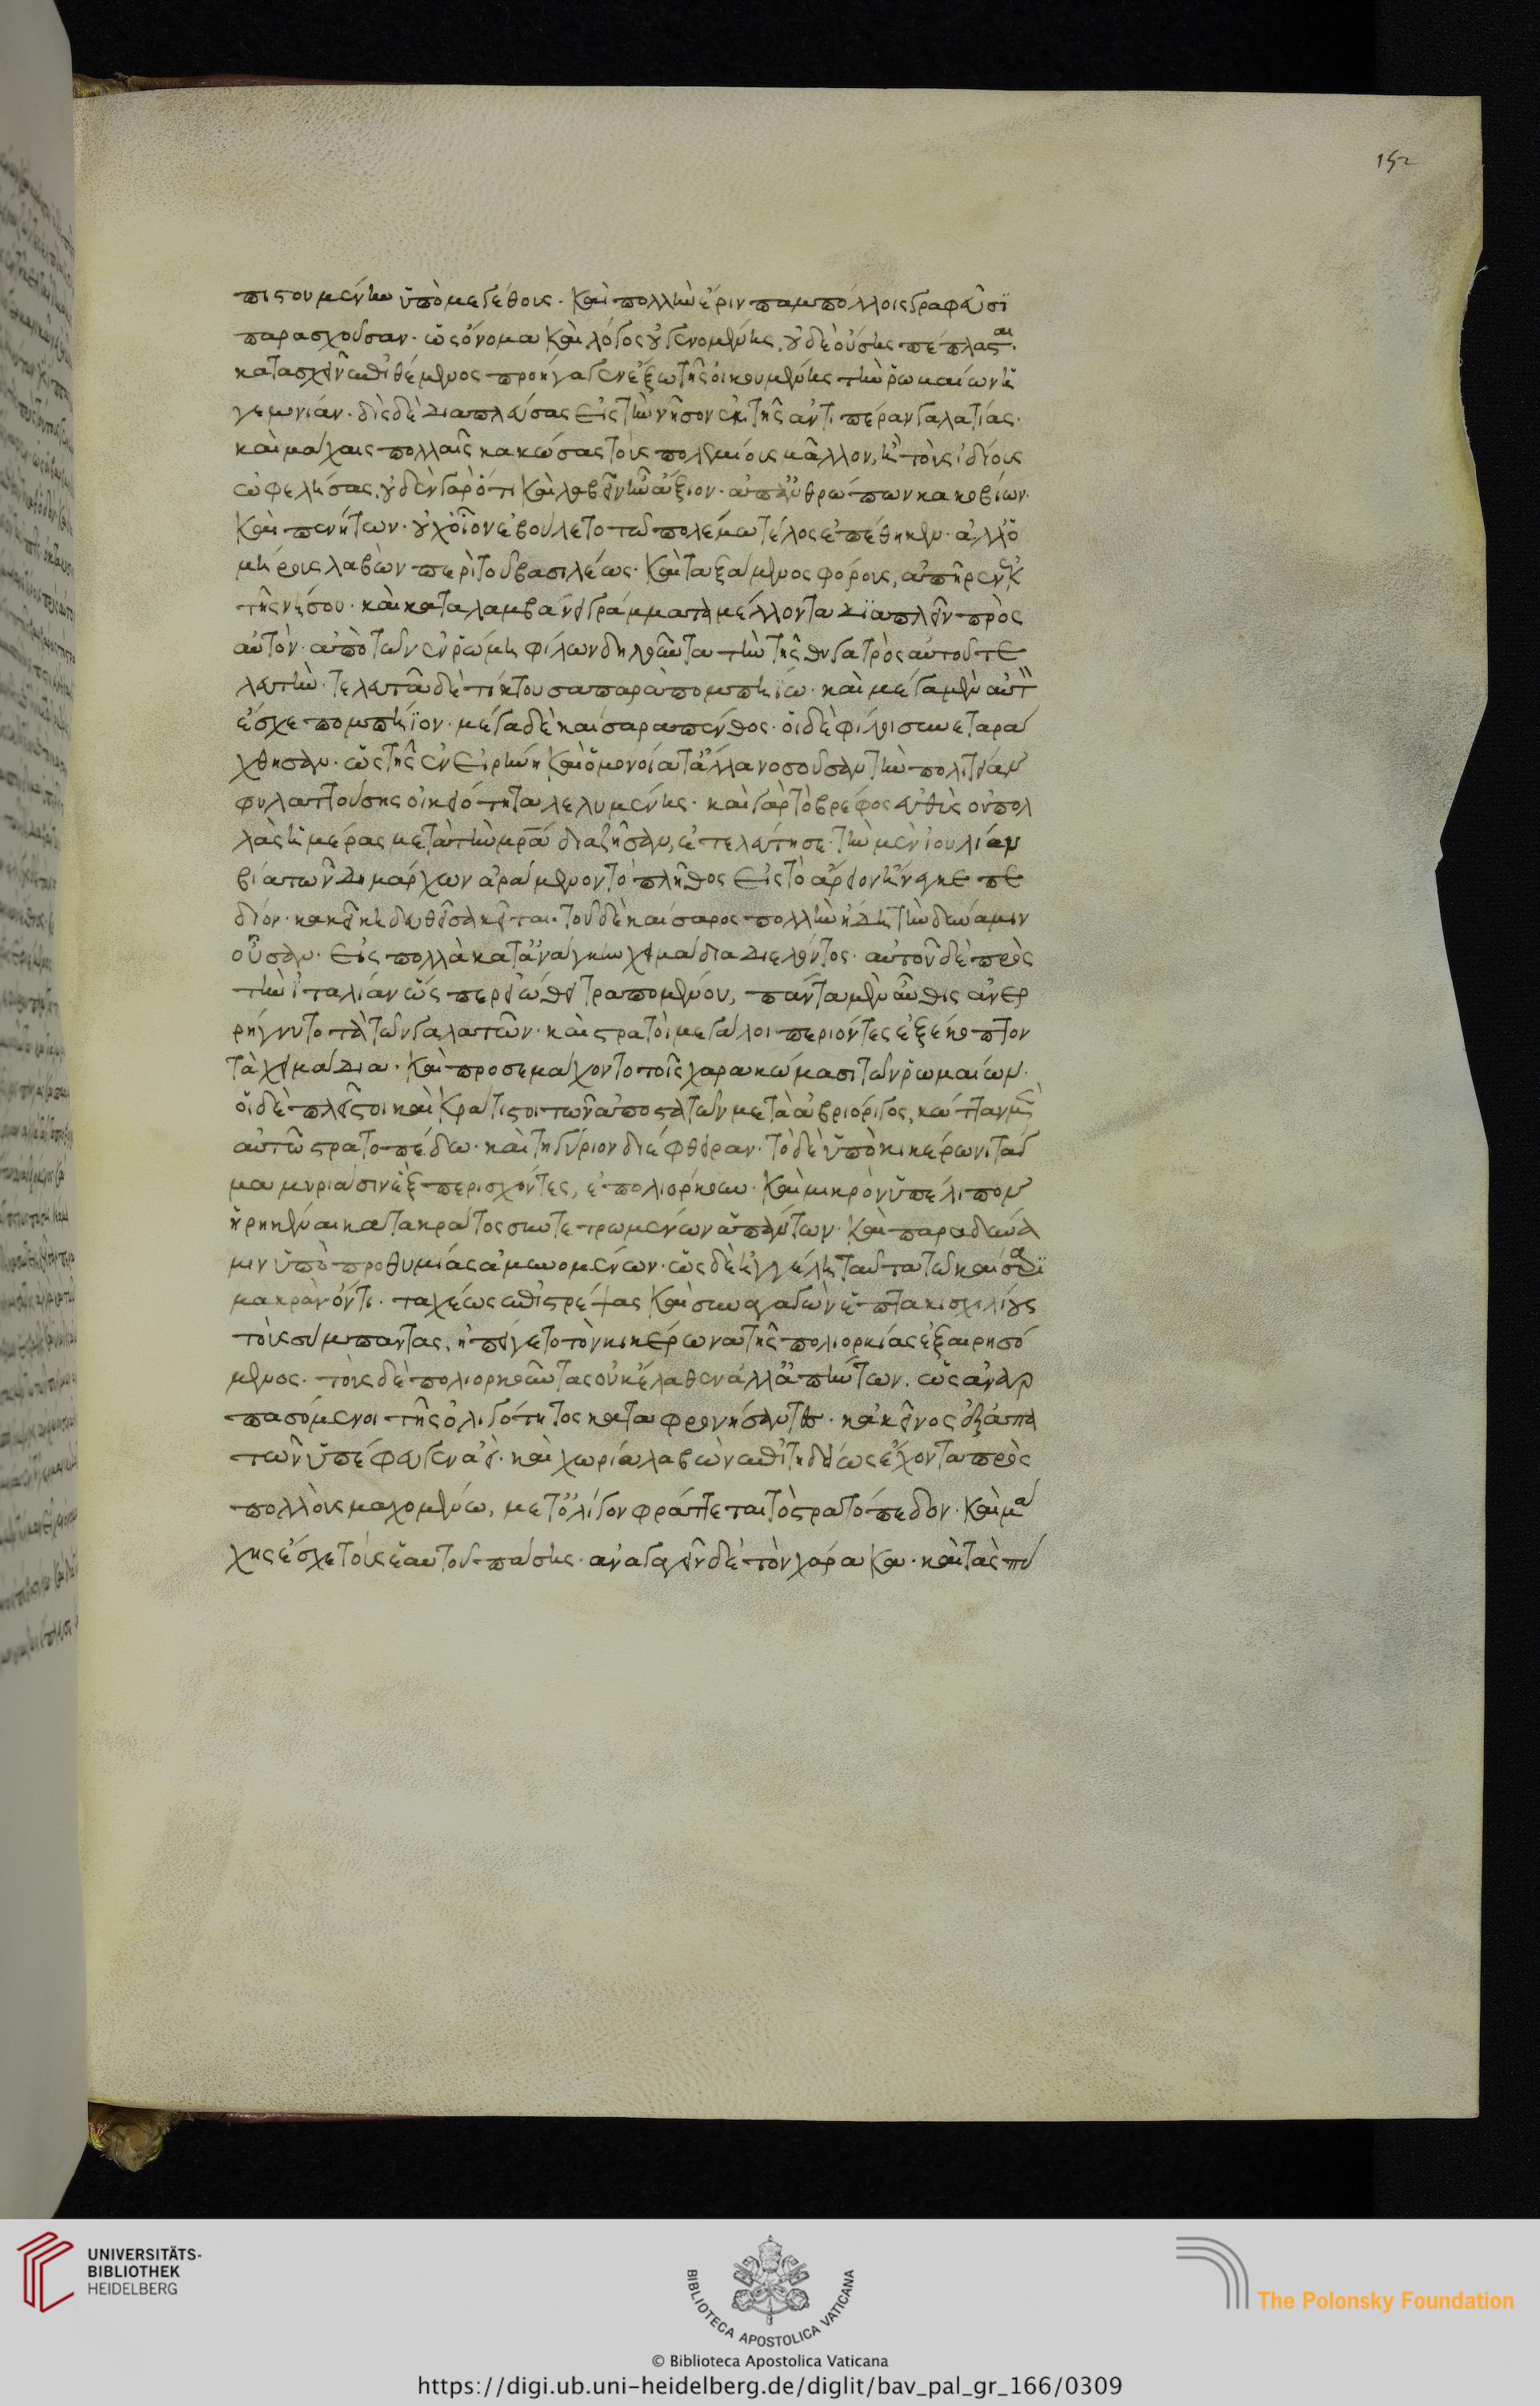 πιστουμένην ὑπὸ μεγέθους· καὶ πολλὴν ἔριν παμπόλλοις γραφεῦσϊ
παρασχοῦσαν· ὡς ὄνομα καὶ λόγος οὐ γενομένης, οὐδὲ οὔσης πέπλασται·
κατασχεῖν ἐπιθέμενος προήγαγεν ἔξω τῆς οἰκουμένης τὴν ῥωμαίων ἡ
γεμονίαν· δὶς δὲ διαπλεύσας εἰς τὴν νῆσον ἐκ τῆς ἀντιπέραν γαλατίας·
καὶ μάχαις πολλαῖς κακώσας τοὺς πολεμίους μᾶλλον, ἢ τοὺς ἰδίους
ὠφελήσας, οὐδὲν γὰρ ὅτι καὶ λαβεῖν ἦν ἄξιον· ἀπ' ἀνθρώπων κακοβίων·
καὶ πενήτων· οὐχ οἷον ἐβούλετο τῶ πολέμω τέλος ἐπέθηκεν· ἀλλ' ὁ
μήρους λαβὼν περὶ τοῦ βασιλέως· καὶ ταξάμενος φόρους, ἀπῆρεν ἐκ
τῆς νήσου· καὶ καταλαμβάνει γράμματα μέλλοντα διαπλεῖν πρὸς
αὐτὸν· ἀπὸ τῶν ἐν ῥώμη φίλων δηλοῦντα τὴν τῆς θυγατρὸς αὐτοῦ τε
λευτήν· τελευτᾶ δὲ τίκτουσα παρὰ πομπηΐω· καὶ μέγα μὲν αὐτὸν
ἔσχε πομπήϊον· μέγα δὲ καίσαρα πένθος· οἱ δὲ φίλοι συνεταρά
χθησαν· ὡς τῆς ἐν εἰρήνη καὶ ὁμονοία τἄλλα νοσοῦσαν τὴν πολιτείαν
φυλαττούσης οἰκειότητα λελυμένης· καὶ γὰρ τὸ βρέφος εὐθὺς οὐ πολ
λὰς ἡμέρας μετὰ τὴν μρᾶ διαζῆσαν, ἐτελεύτησε· τὴν μὲν ἰουλίαν
βία τῶν δημάρχων ἀράμενον τὸ πλῆθος εἰς τὸ ἄρειον ἤνεγκε πε
δίον· κἀκεῖ κηδευθεῖσα κεῖται· τοῦ δὲ καίσαρος πολλὴν ἤδη τὴν δύναμιν
οὖσαν· εἰς πολλὰ κατ' ἀνάγκην χειμάδια διελόντος· αὐτοῦ δὲ πρὸς
τὴν ἰταλίαν ὥσπερ εἰώθει τραπομένου, πάντα μὲν αὖθις ἀνερ
ρήγνυτο τὰ τῶν γαλατῶν· καὶ στρατοὶ μεγάλοι περιόντες ἐξέκοπτον
τὰ χειμάδια· καὶ προσεμάχοντο τοῖς χαρακώμασι τῶν ῥωμαίων·
οἱ δὲ πλεῖστοι καὶ κράτιστοι τῶν ἀποστάντων μετὰ ἀβριόριγος, κώτταν μὲν
αὐτῶ στρατοπέδω· καὶ τηδύριον διέφθειραν· τὸ δὲ ὑπὸ κικέρωνι τάγ
μα μυριάσιν ἓξ περισχόντες, ἐπολιόρκουν· καὶ μικρὸν ὑπέλιπον
ἡρηκέναι κατακράτος συντετρωμένων ἁπάντων· καὶ παρὰ δύνα
μιν ὑπὸ προθυμίας ἀμυνομένων· ὡς δὲ ἠγγέλη ταῦτα τῶ καίσαρϊ
μακρὰν ὄντι· ταχέως ἐπιστρέψας καὶ συναγαγὼν ἑπτακισχιλίους
τοὺς σύμπαντας, ἠπείγετο τὸν κικέρωνα τῆς πολιορκίας ἐξαιρησό
μενος· τοὺς δὲ πολιορκοῦντας οὐκ ἔλαθεν ἀλλ' ἀπήντων, ὡς ἀναρ
πασόμενοι τῆς ὀλιγότητος καταφρονήσαντες· κἀκεῖνος ἐξαπα
τῶν ὑπέφευγεν ἀεί· καὶ χωρία λαβὼν ἐπιτηδείως ἔχοντα πρὸς
πολλοὺς μαχομένω, μετ' ὀλίγον φράττεται τὸ στρατόπεδον· καὶ μά
χης ἔσχε τοὺς ἑαυτοῦ πάσης· ἀναγαγεῖν δὲ τὸν χάρακα· καὶ τὰς πύ
152
UNIVERSITÄTS-
BIBLIOTHEK
HEIDELBERG
BIBLIOTECA APOSTOLICA VATICANA
The Polonsky Foundation
© Biblioteca Apostolica Vaticana
https://digi.ub.uni-heidelberg.de/diglit/bav_pal_gr_166/0309